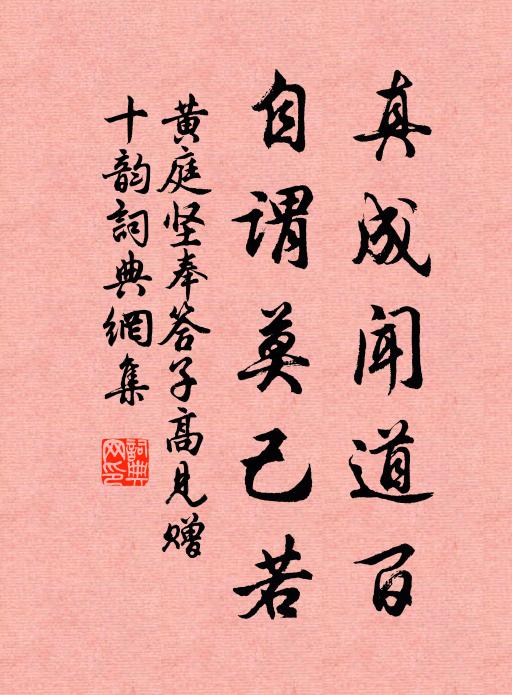 真成闻道百
自谓莫己若
黄庭坚奉答子高见赠
十韵詞典網集
詞典
网印